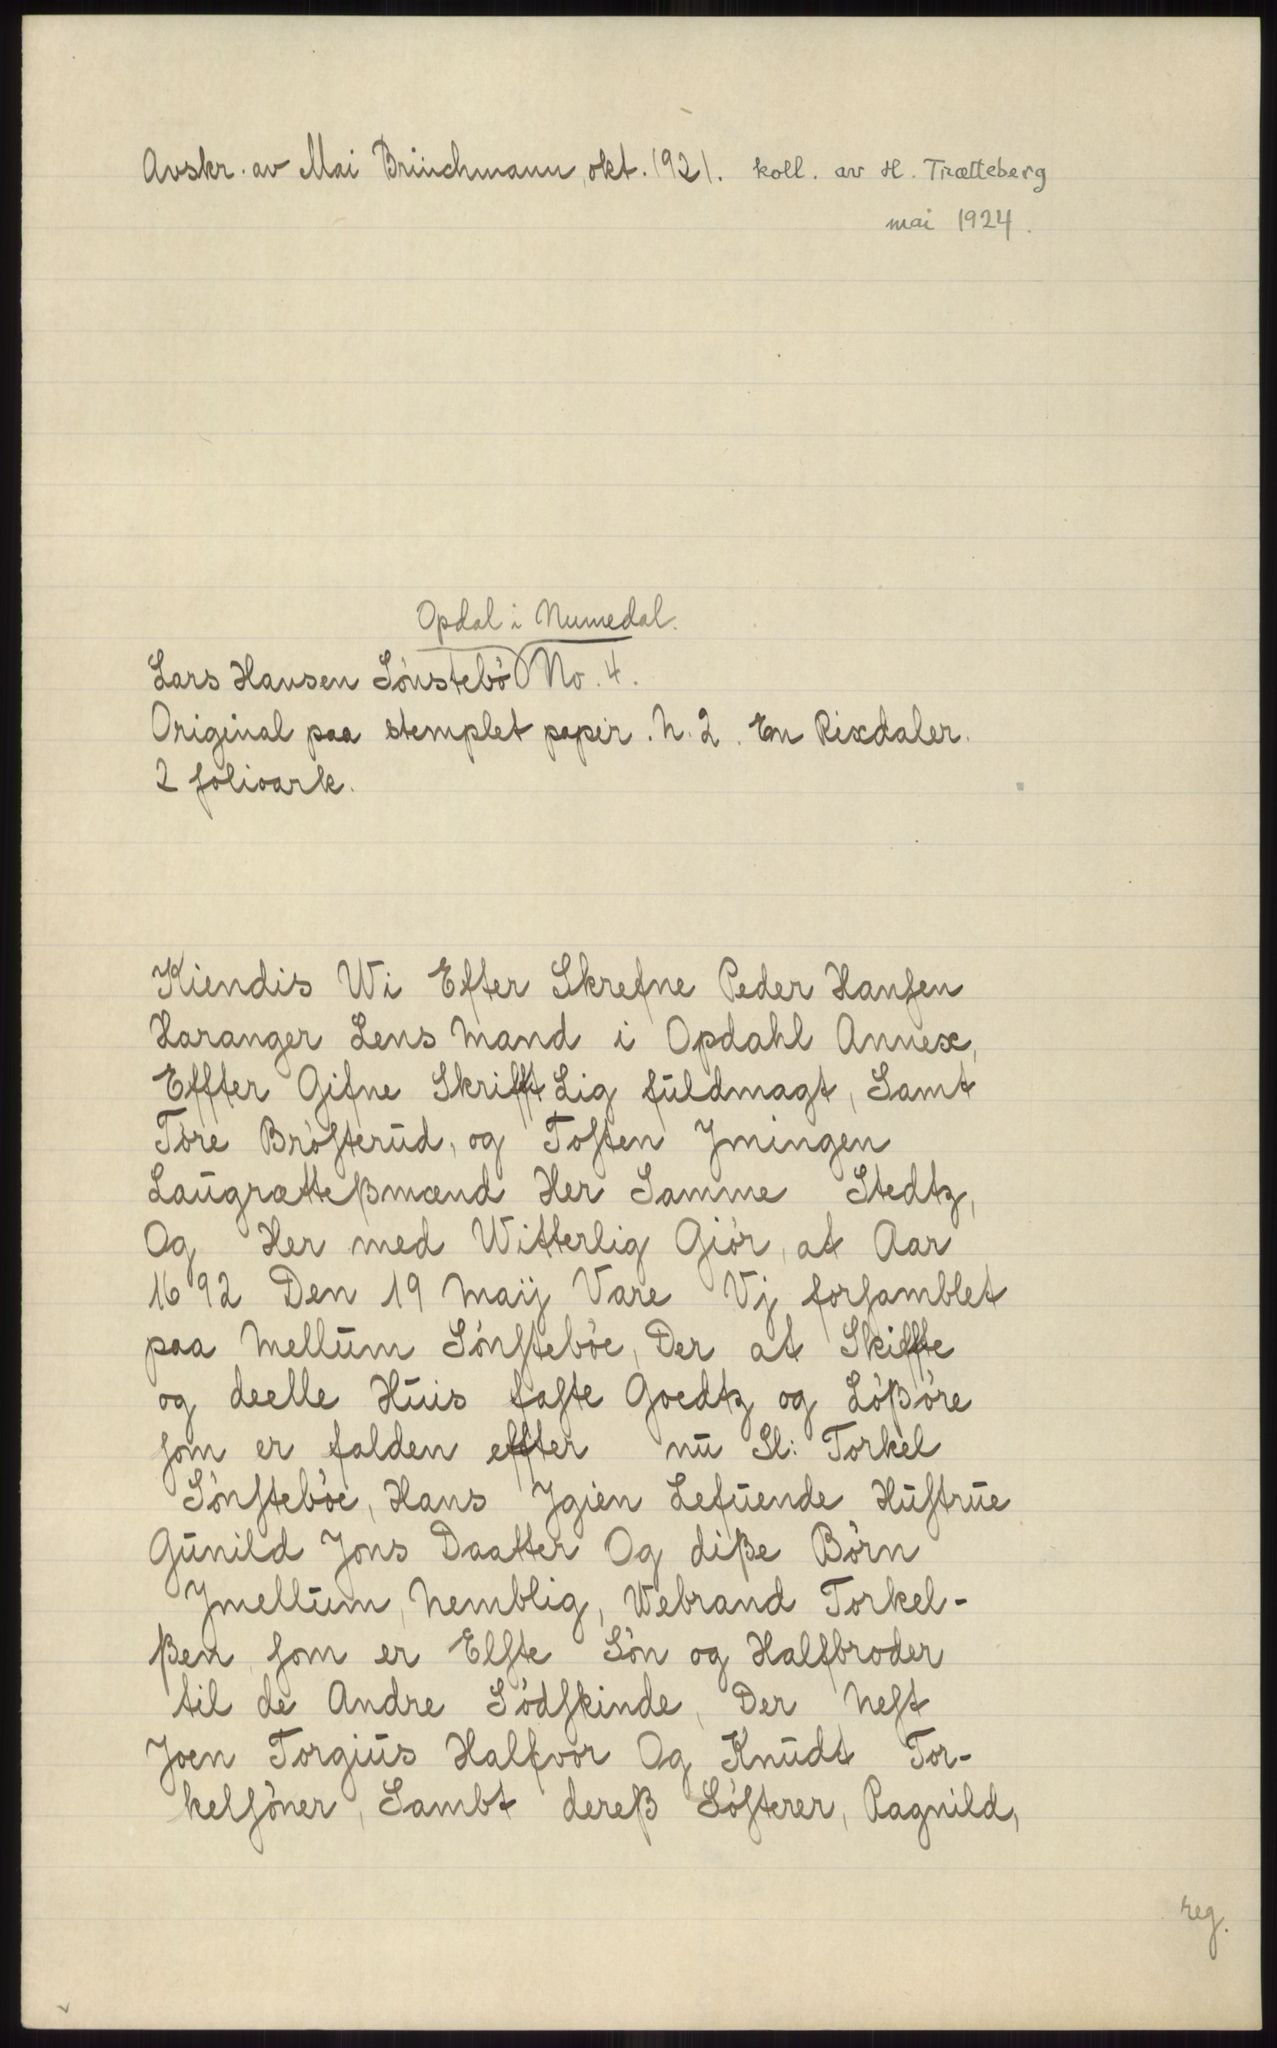 Avskr. av Mai Brünchmann, okt. 1921. koll. av H. Trætteberg
mai 1924.
Opdal i Numedal.
Lars Hansen Sönstebö No. 4.
Original paa stemplet papir. N. 2. En Rixdaler.
2 folioark.
Kiendis Wi Efter Skrefne Peder Hansen
Haranger Lens Mand i Opdahl Annex,
Effter Gifne Skrifft Lig fuldmagt, Samt
Töre Brösterud, og Tosten Ymingen
Laugrætteßmænd Her Samme Stedtz,
Og Her med Witterlig Giör, at Aar
1692 Den 19 Maij Vare Vj forsamblet
paa Mellum Sönsteböe, Der at Skiffte
og deelle Huis faste Goedtz og Lößöre
som er falden effter nu Sl: Torkel
Sönsteböe, Hans Ygien Lefuende Hustrue
Gunild Jons Daatter Og diße Börn
Ymellum, Nemblig, Webrand Torkel-
ßen som er Elste Sön og Halfbroder
til de Andre Södskinde, Der Nest
Joen Torgius Halfvor Og Knudt Tor-
kelsöner, Sambt dereß Sösterer, Ragnild,
reg.